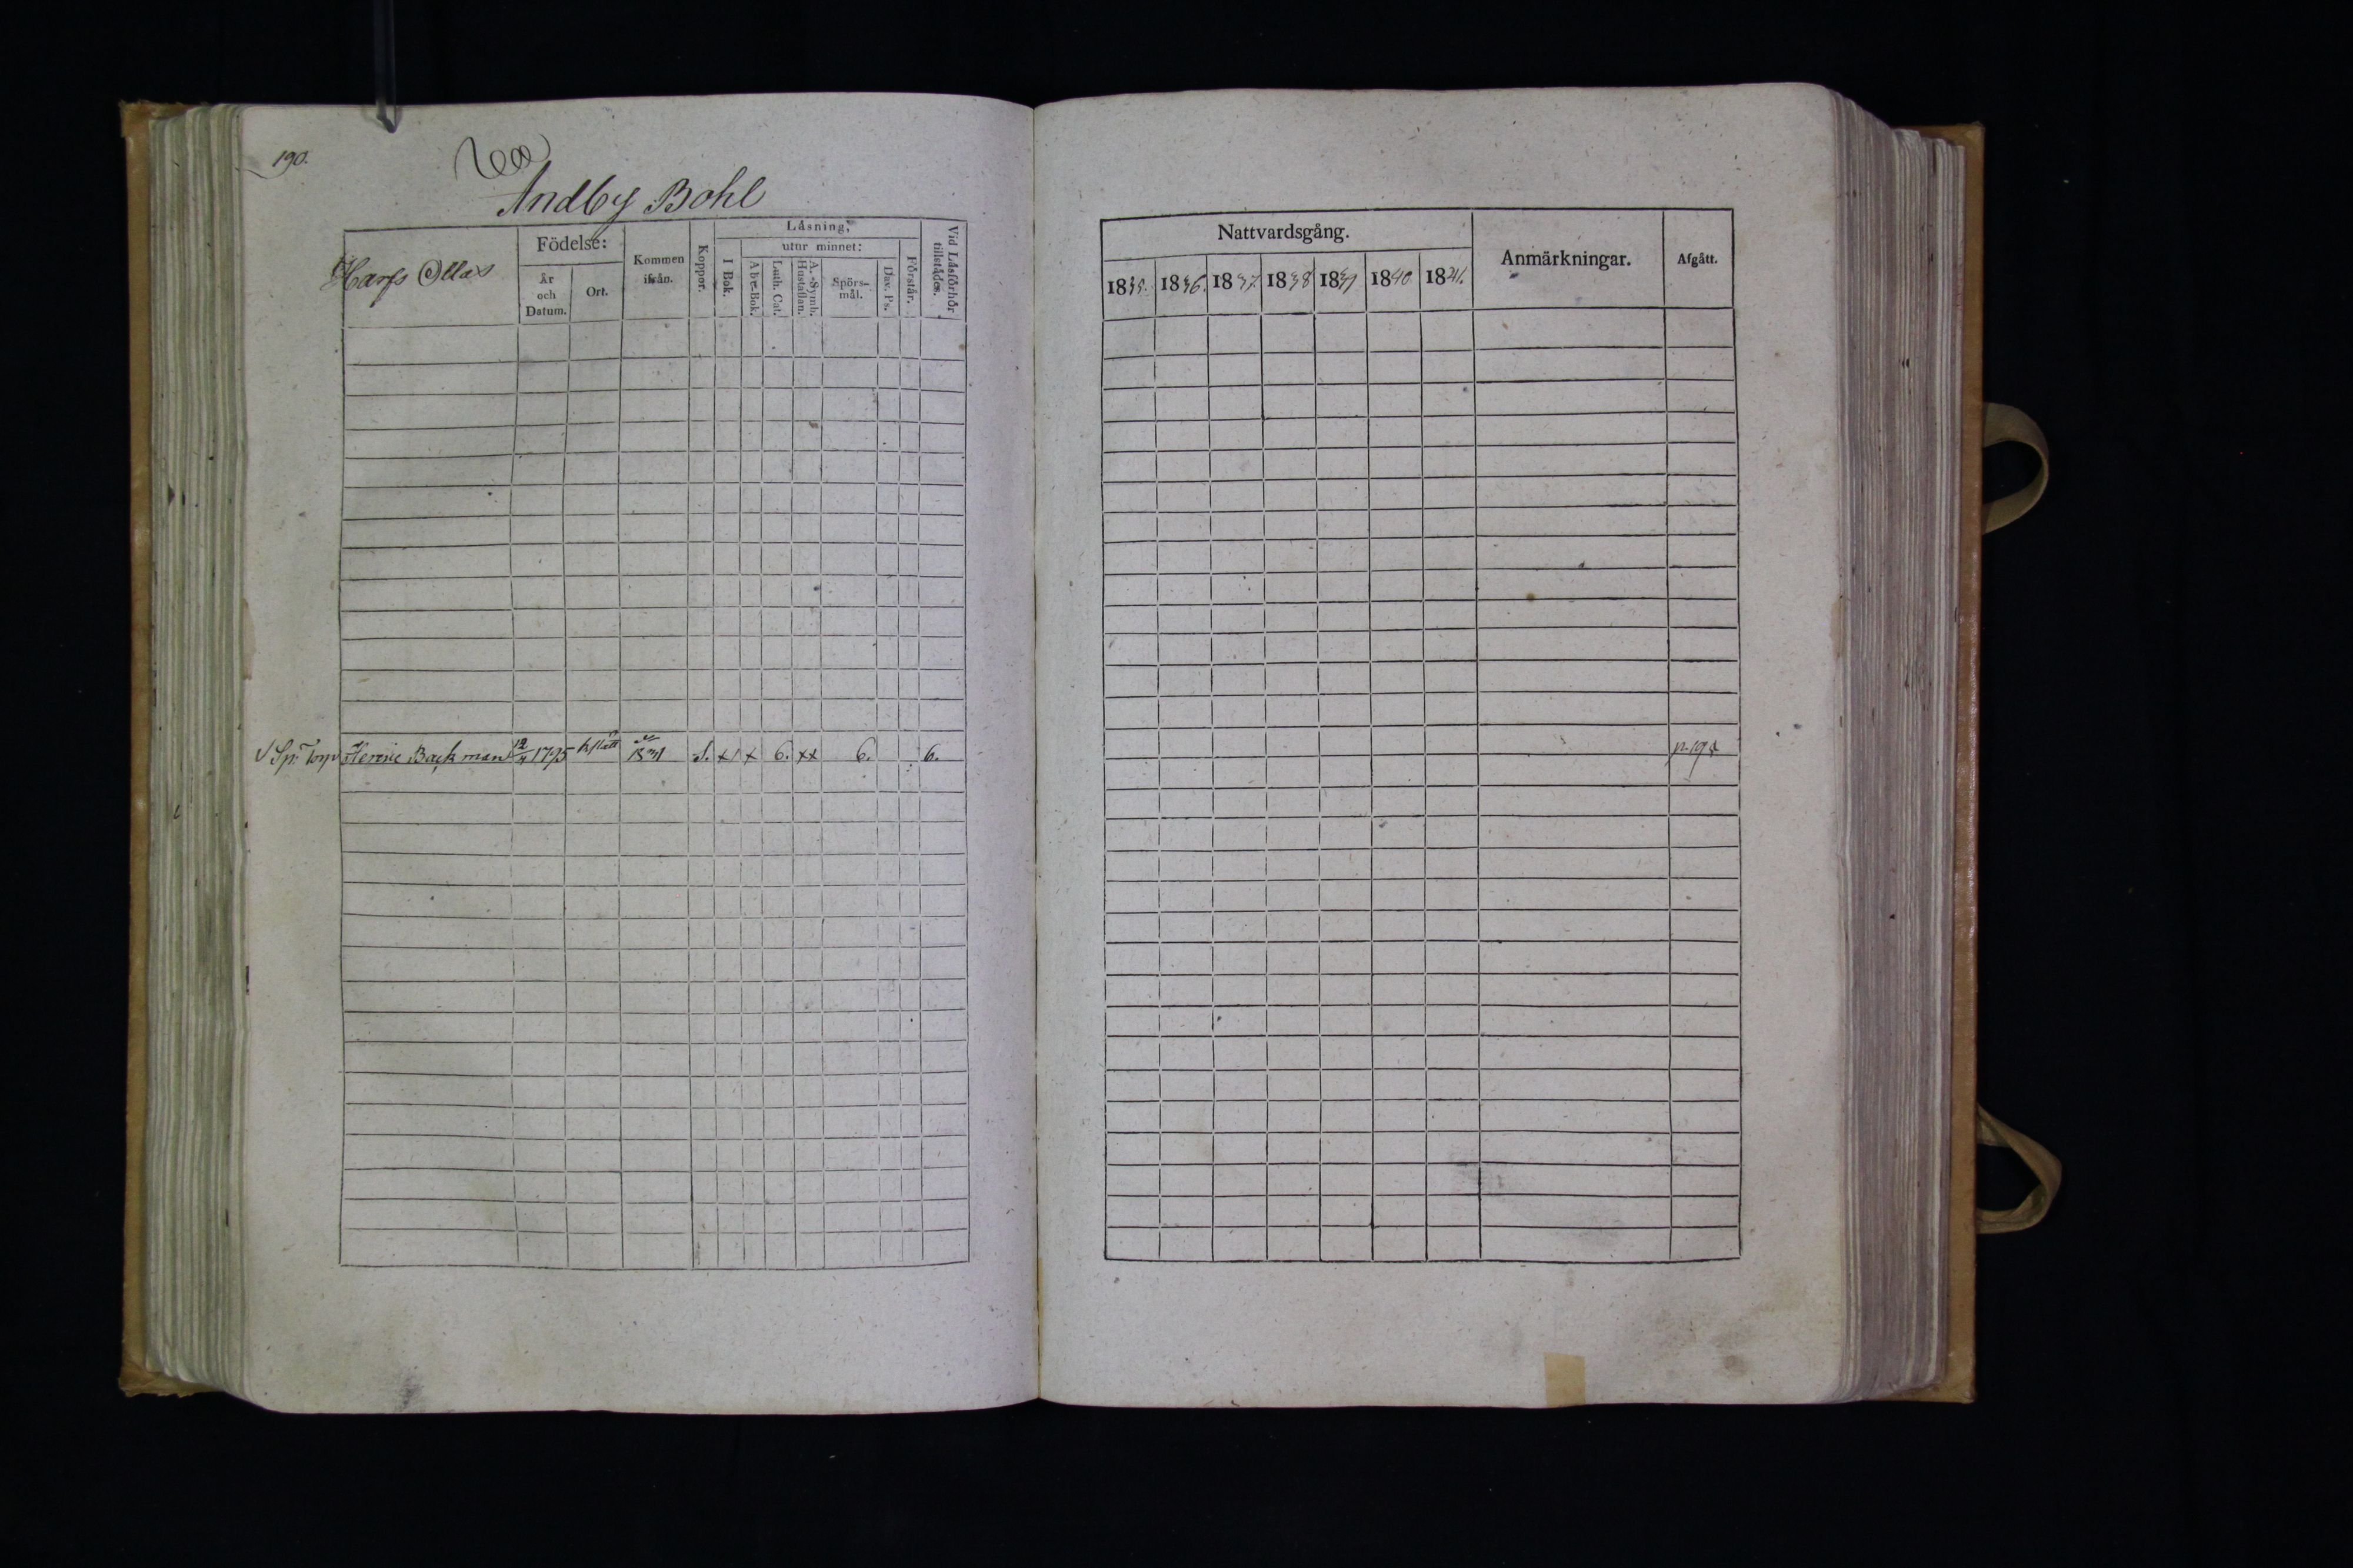 190.
Andby Bohl
Harfs Ollas
Födelse:
År och Datum.
Ort.
Kommen ifrån.
Koppor.
Läsning,
I Bok.
utur minnet:
Abc-Bok.
Luth. Cat.
A. Symb. Hustaflan.
Spörs-mål.
Dav. Ps.
Förstår.
Vid Läsförhör tillstädes.
Nattvardsgång.
1835. 1836. 1837. 1838 1839 1840 1841.
Anmärkningar.
Afgått.
Backman 12/4 1795 1831 6. xx 6. 6.